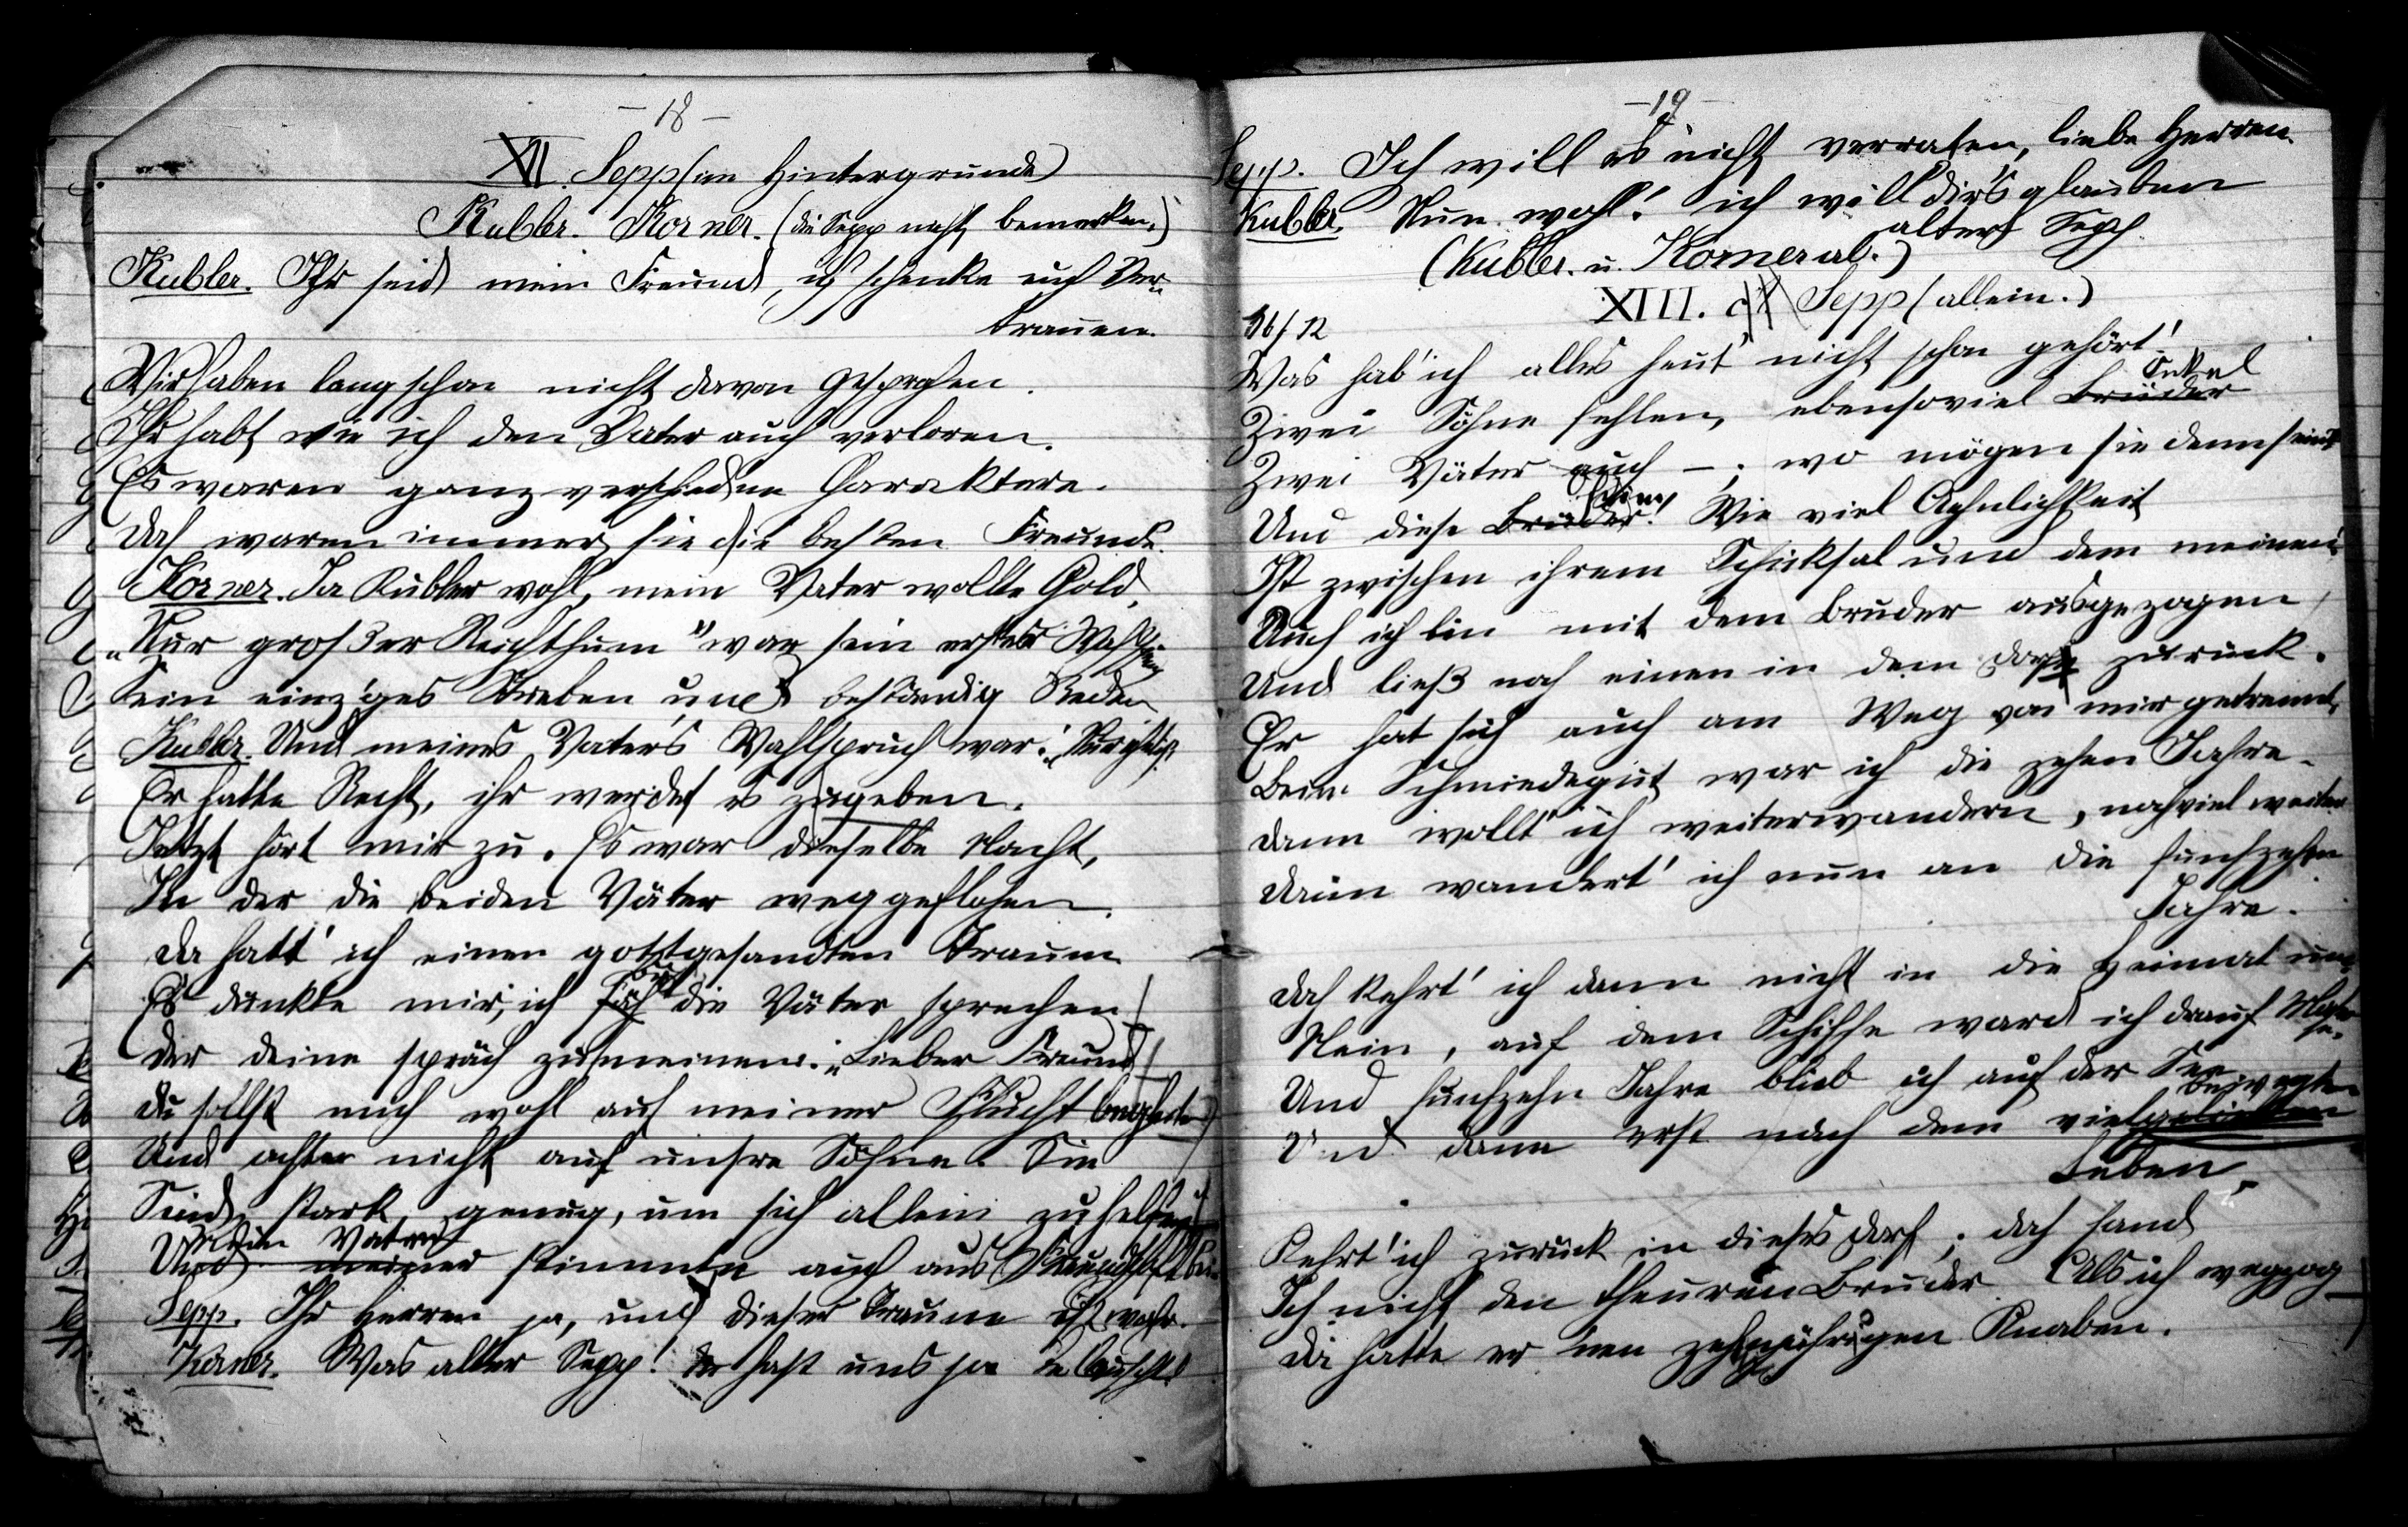 - 18 -
XII. Sepp (im Hintergrunde)
Kubler. Korner. (die Sepp nicht bemerken.)
Kubler. Ihr seid mein Freund, ich schenke euch Ver-
trauen.
Wir haben lang schon nicht davon gesprochen.
Ihr habt wie ich den Vater auch verloren.
Es waren ganz verschiedne Charaktere.
Doch waren immer sie die besten Freunde.
Korner. Ja Kubler wohl, mein Vater wollte Gold,
"Nur großer Reichthum" war sein erster
Sein einz'ges Streben und beständig Reden
Kubler. Und meines Vaters Wahlspruch war:
Er hatte Recht, ihr werdet es zugeben.
Jetzt hört mir zu. Es war dieselbe Nacht,
In der die beiden Väter weggeflohen.
Da hatt' ich einen gottgesandten Traum
Es dünkte mir, ich die Väter sprechen
Der deine sprach zu meinem: "Lieber Freund
Du sollst mich wohl auf meiner Flucht begleiten
Und achte nicht auf unsre Söhne. Sie
Sind stark genug, um sich allein zu helfen"
Und meiner stimmte auch aus Freundschaft bei.
Mein Vater
Sepp. Ihr Herren ja, und dieser Traum ist wahr.
Korner. Was alter Sepp! du hast uns ja belauscht!
- 19 -
Sepp. Ich will es nicht verraten, liebe Herren.
Kubler. Nun wohl! ich will dir's glauben
alter Sepp.
(Kubler. u. Korner ab.)
XIII. Sepp (allein.)
36/12
Was hab' ich alles heut' nicht schon gehört!
Zwei Söhne fehlen, ebensoviel Brüder
Enkel
Zwei Väter auch –; wo mögen sie denn sein?
Und diese Brüder! Wie viel Aehnlichkeit
Söhne
Ist zwischen ihrem Schicksal und dem meinen!
Auch ich bin mit dem Bruder ausgezogen
Und ließ noch einen in dem Dorf zurück.
Er hat sich auch am Weg von mir getrennt,
Beim Schmiedegut war ich die zehen Jahre.
Dann wollt' ich weiterwandern, noch viel weiter
Drum wandert' ich nun an die funfzehn
Jahre.
Doch kehrt' ich dann nicht in die Heimat um,
Nein, auf dem Schiffe ward ich drauf Matro-
se.
Und funfzehn Jahre blieb ich auf der See
Und dann erst nach dem vielgeliebten
bewegten
Leben,
Kehrt' ich zurück in dieses Dorf; doch fand
Ich nicht den theuren Bruder. Als ich wegzog
Da hatte er 'nen zehnjährigen Knaben.